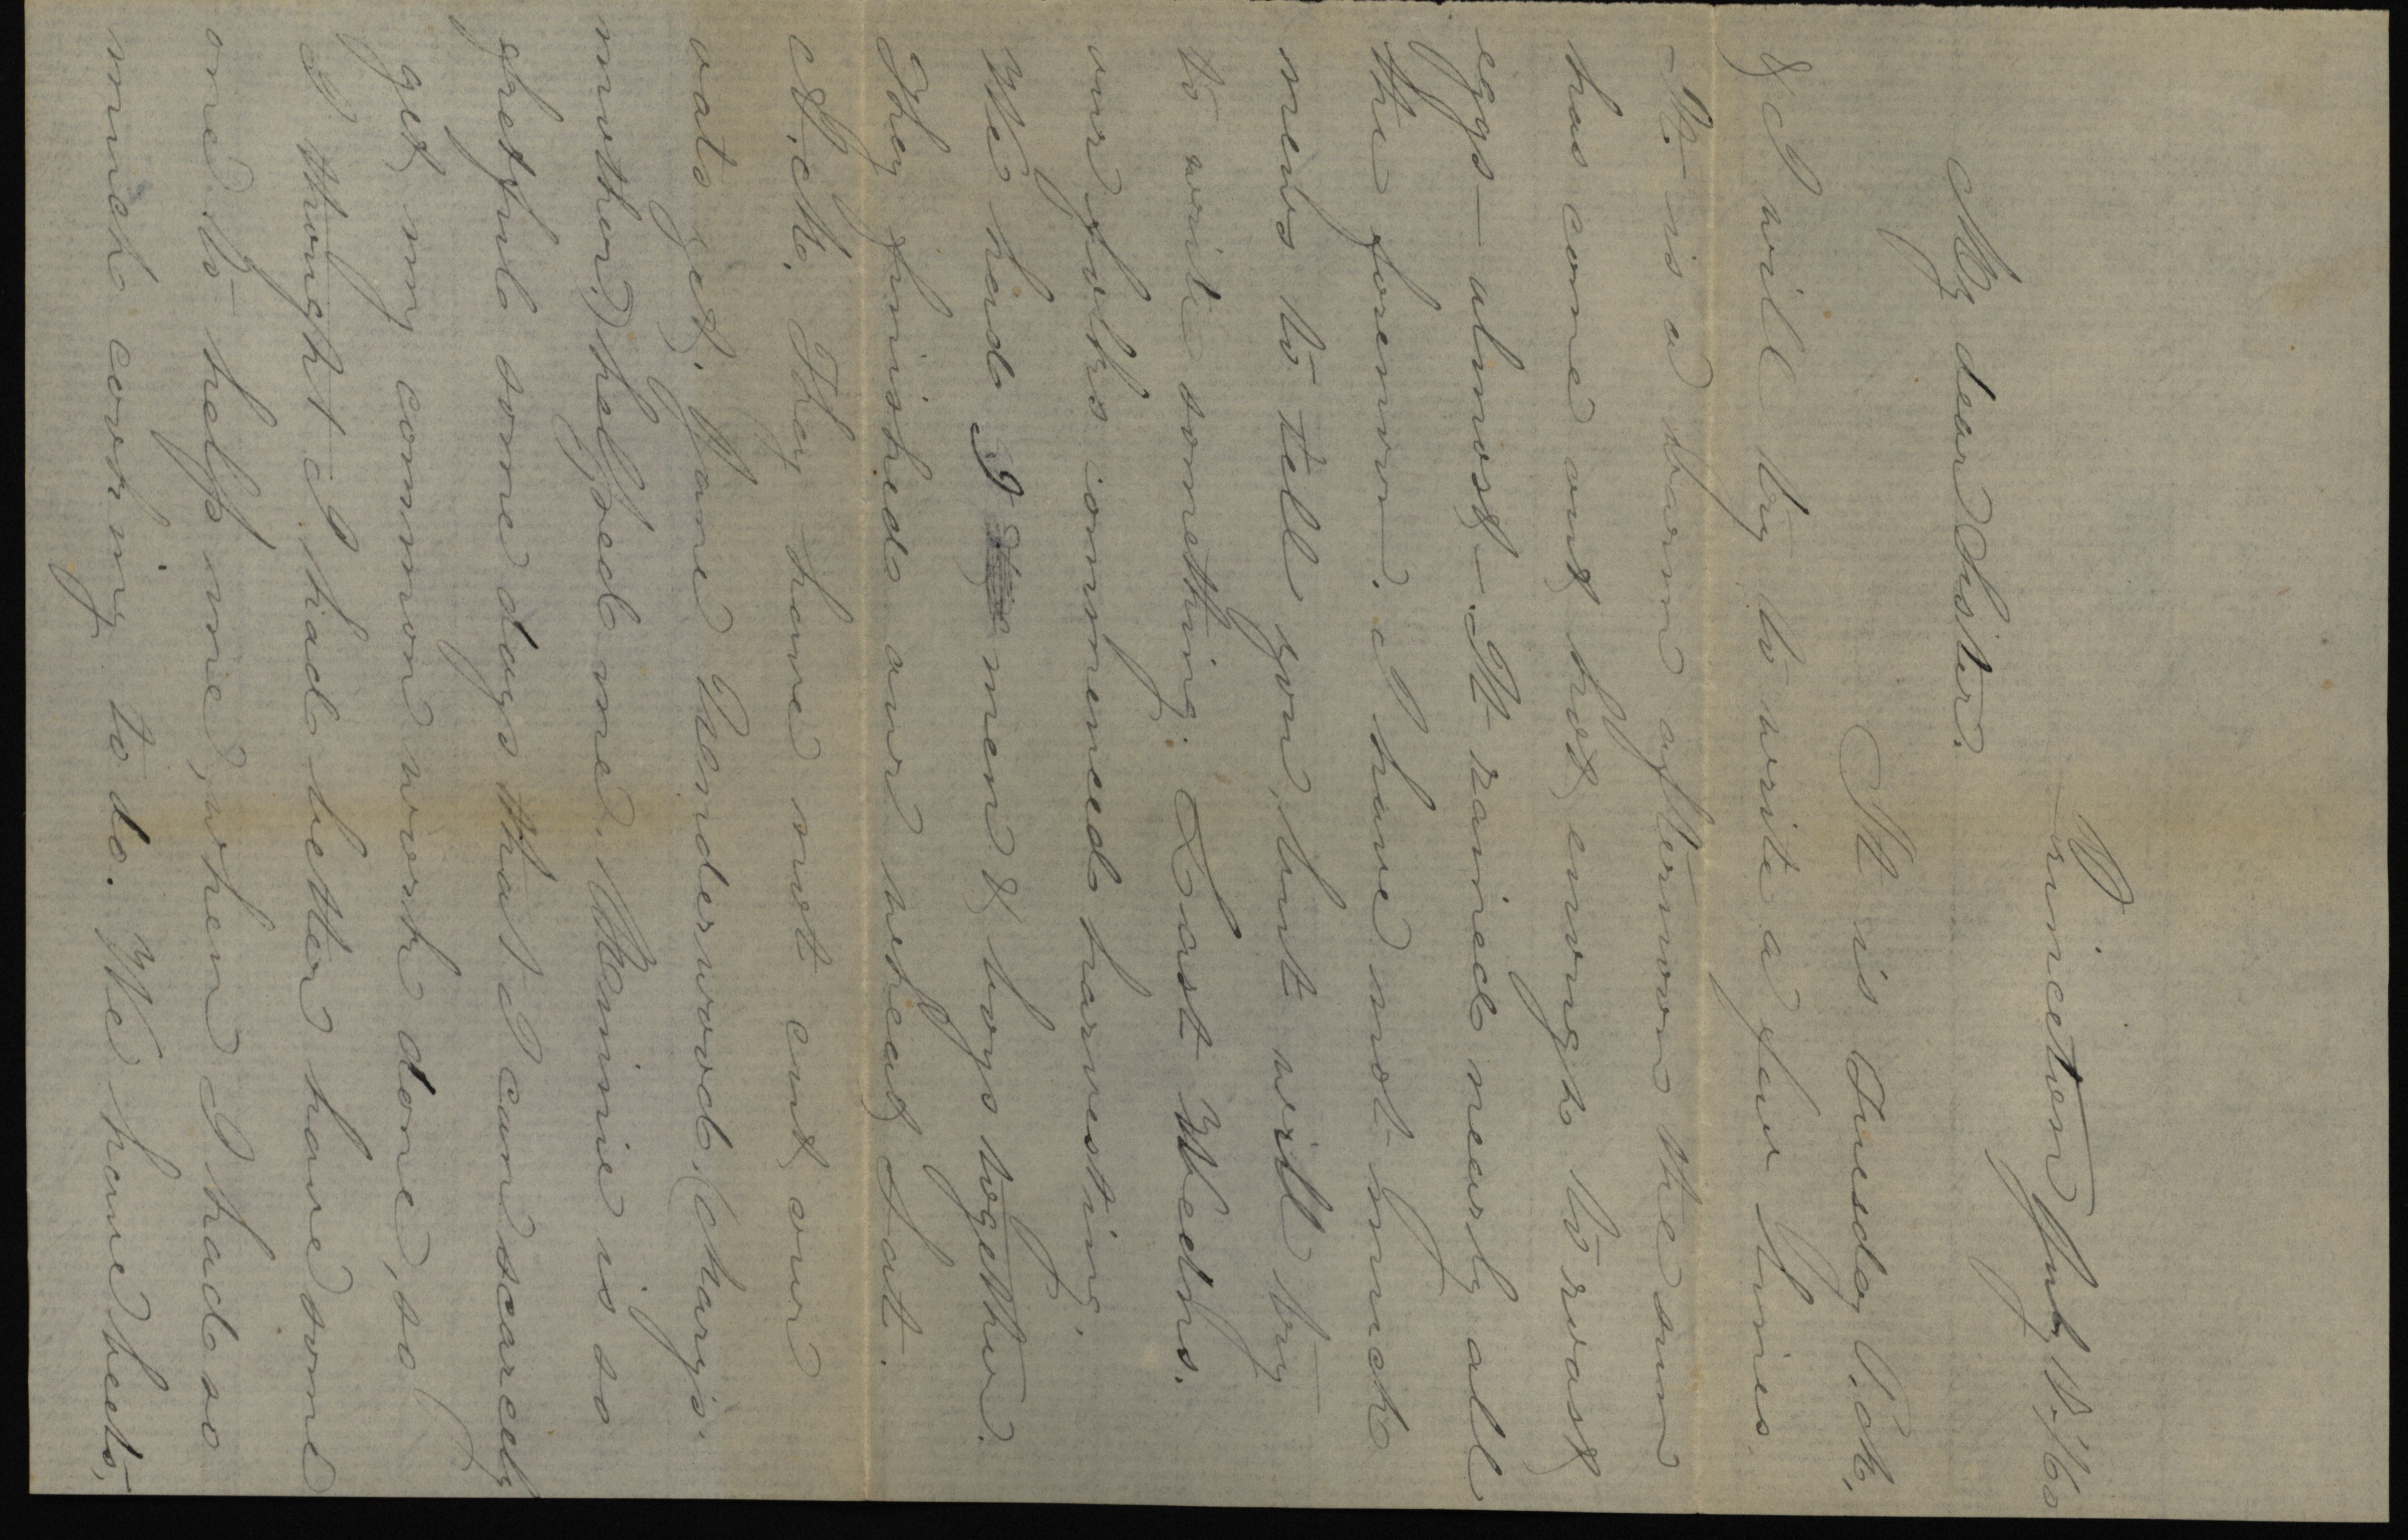 Princeton July 17, /60
My dear Sister.
It is Tuesday P.M,
& I will try to write a few lines.
It is a warm afternoon the sun
has come out hot enough to roast
eggs — almost — It rained nearly all
the forenoon. I have not much
news to tell you, but will try
to write something. Last Wedns.
our folks commenced harvesting,
We had 9 men & boys together.
They finished our wheat Sat.
A.M. They have not cut our
oats yet. Jane Underwood (Mary's
mother) helped me. Minnie is so
fretful some days that I can scarcely
get my common work done, so
I thought I had better have some
one to help me, when I had so
much cooking to do. We have beets,